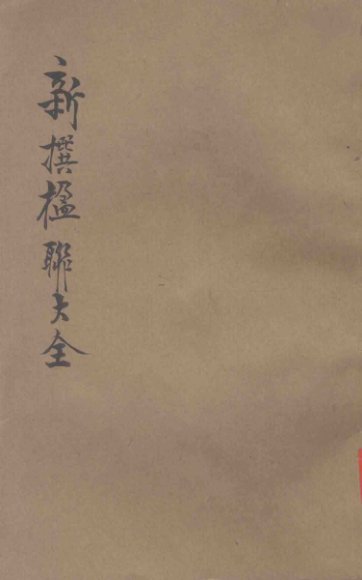 新撰楹聯大全